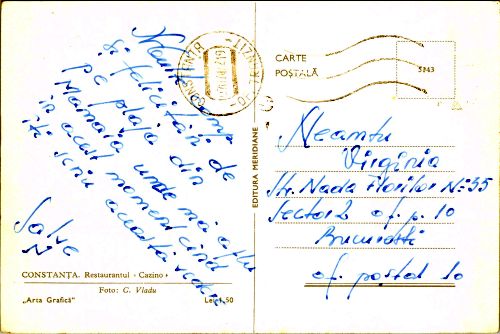 si felicitări de
pe plaja din
Mamaia unde mă aflu
în acest moment cînd
îți scriu această vedere
Salve
CONSTANȚA. Restaurantul «Cazino»
Foto: G. Vladu
„Arta Grafică”
Lei 1,50
EDITURA MERIDIANE
CONSTANȚA
CARTE
POȘTALĂ
5743
Neamtu
Virginia
Str. Nada Florilor No 35
Sector 2 of. p. 10
București
of. postal 10